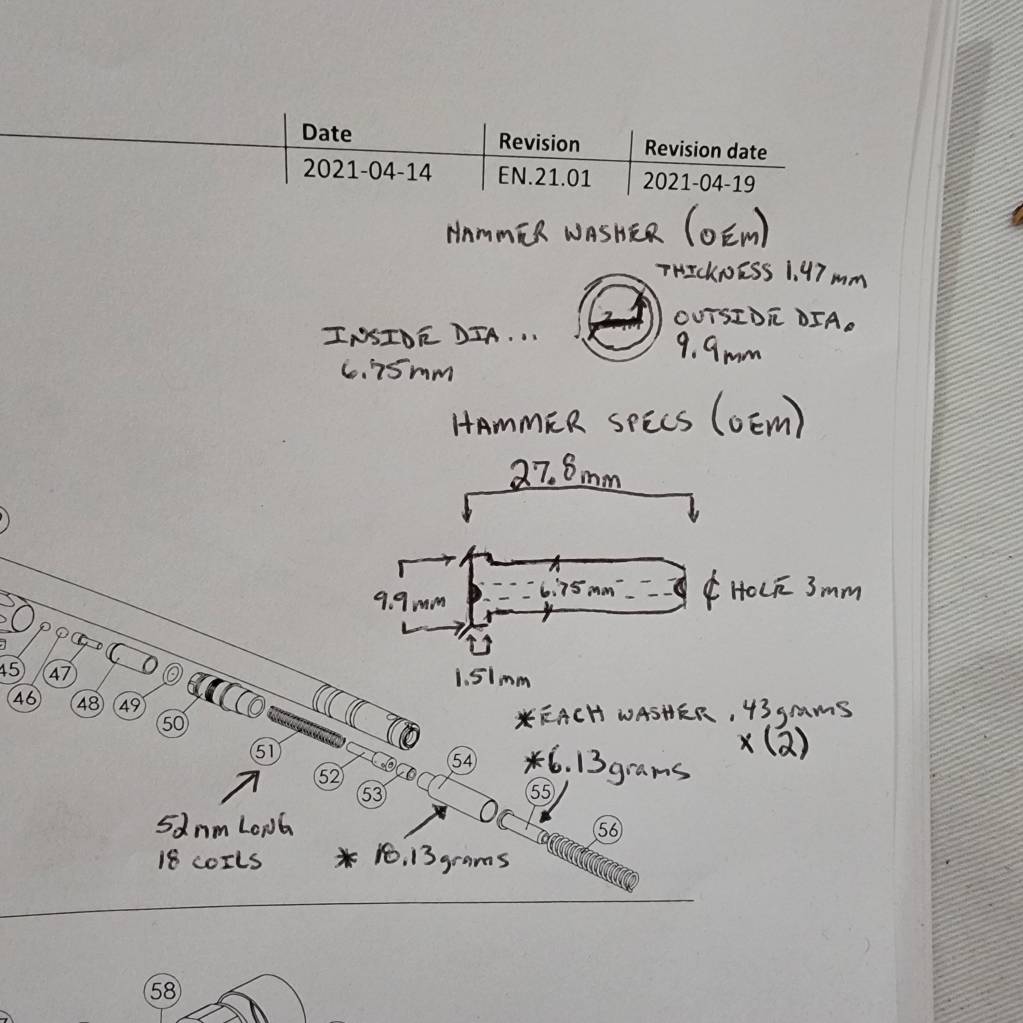 Date Revision Revision date
2021-04-14 EN.21.01 2021-04-19
HAMMER WASHER (OEM)
THICKNESS 1.47mm
INSIDE DIA...
6.75mm
OUTSIDE DIA.
9.9mm
HAMMER SPECS (OEM)
27.8mm
9.9mm
6.75mm
₵ HOLE 3mm
1.51mm
*EACH WASHER .43grams
x (2)
*6.13grams
45
46
47
48
49
50
51
52
53
54
55
56
52mm LONG
18 COILS
* 18.13grams
58